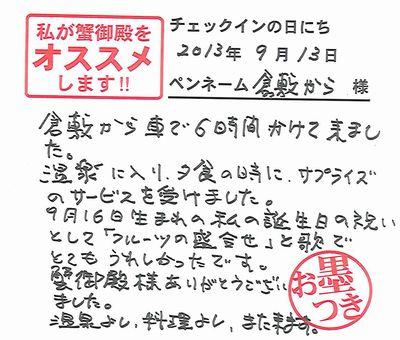 私が蟹御殿を
オススメ
します!!
チェックインの日にち
2013年 9月13日
ペンネーム 倉敷から 様
倉敷から車で6時間かけて来まし
た。
温泉に入り、夕食の時に、サプライズ
のサービスを受けました。
9月16日生まれの私の誕生日の祝い
として「フルーツの盛合せ」と歌で
とてもうれしかったです。
蟹御殿様ありがとうござい
ました。
温泉よし、料理よし、また来ます。
お墨
つき